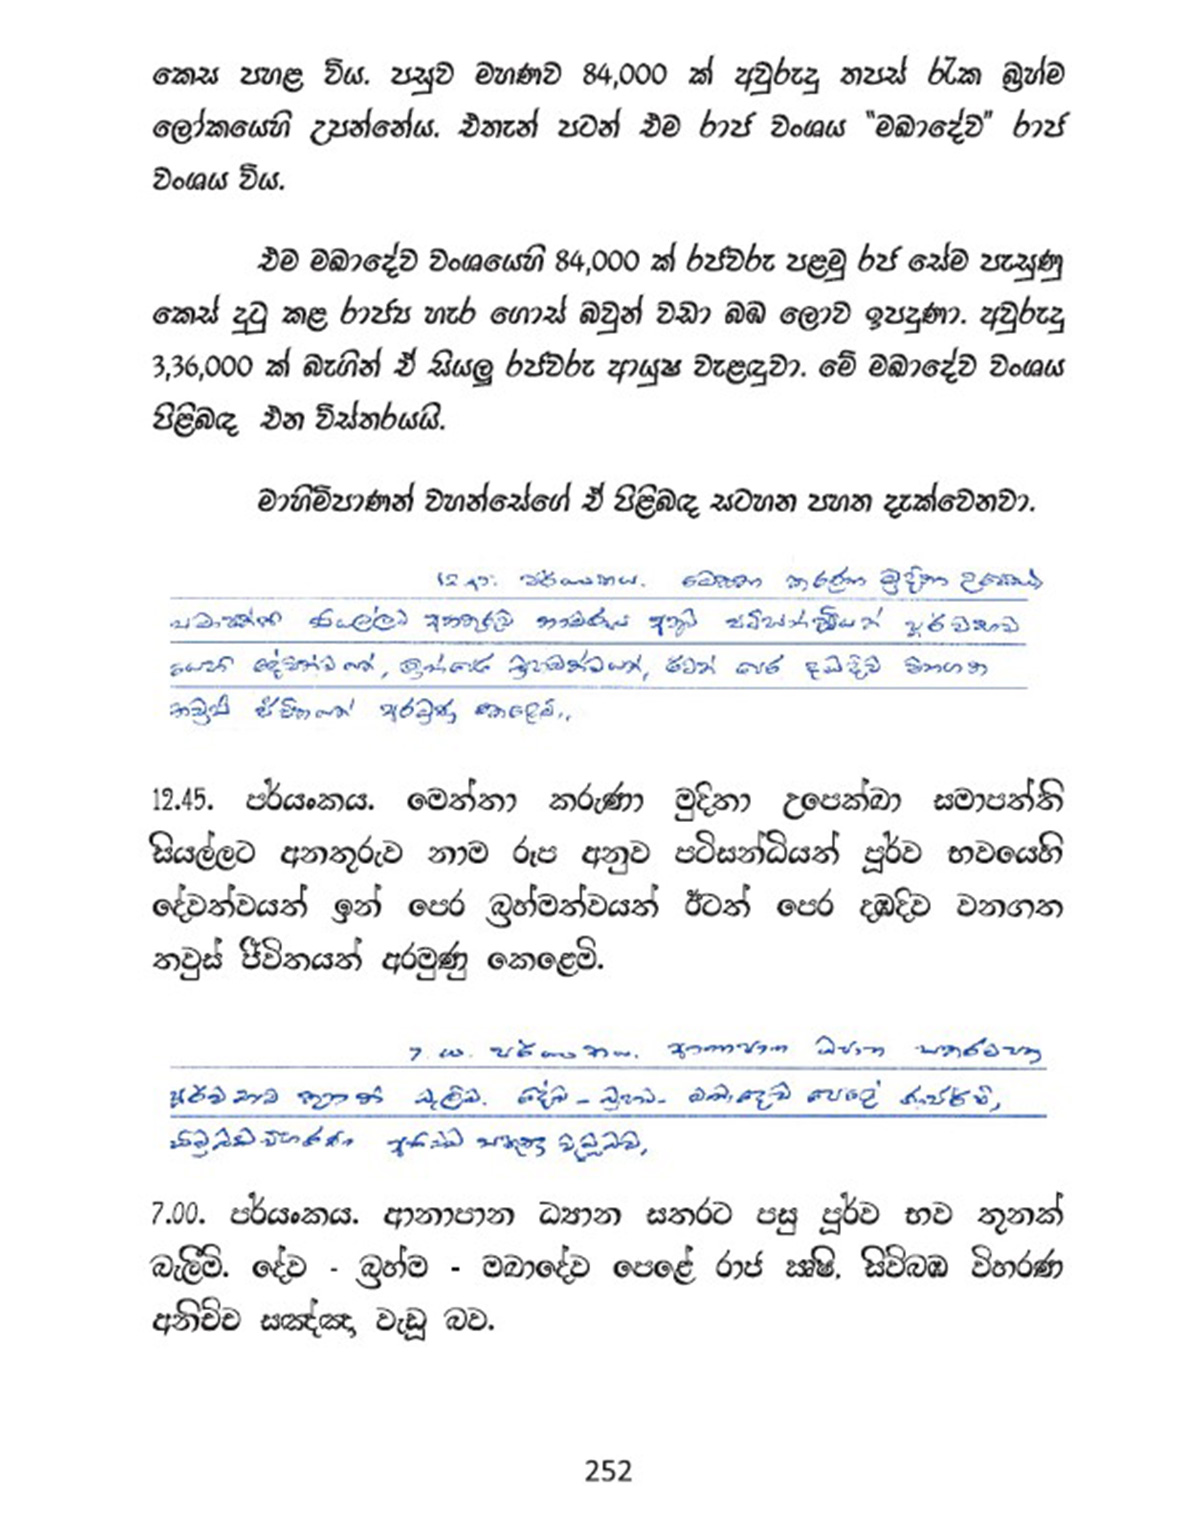 කෙස පහළ විය. පසුව මහණව 84,000 ක් අවුරුදු තපස් රැක බ්‍රහ්ම
ලෝකයෙහි උපන්නේය. එතැන් පටන් එම රාජ වංශය "මඛාදේව" රාජ
වංශය විය.
එම මඛාදේව වංශයෙහි 84,000 ක් රජවරු පළමු රජ සේම පැසුණු
කෙස් දුටු කළ රාජ්‍ය හැර ගොස් බවුන් වඩා බඹ ලොව ඉපදුණා. අවුරුදු
3,36,000 ක් බැගින් ඒ සියලු රජවරු ආයුෂ වැළඳුවා. මේ මඛාදේව වංශය
පිළිබඳ එන විස්තරයයි.
මාහිමිපාණන් වහන්සේගේ ඒ පිළිබඳ සටහන පහත දැක්වෙනවා.
12.45. පර්යංකය. මෙත්තා කරුණා මුදිතා උපෙක්ඛා
සමාපත්ති සියල්ලට අනතුරුව නාමරූප අනුව පටිසන්ධියත් පූර්වභව
යෙහි දේවත්වයත්, ඉන්පෙර බ්‍රහ්මත්වයත්, ඊටත් පෙර දඹදිව වනගත
තවුස් ජීවිතයත් අරමුණු කෙළෙමි.
12.45. පර්යංකය. මෙත්තා කරුණා මුදිතා උපෙක්ඛා සමාපත්ති
සියල්ලට අනතුරුව නාම රූප අනුව පටිසන්ධියත් පූර්ව භවයෙහි
දේවත්වයත් ඉන් පෙර බ්‍රහ්මත්වයත් ඊටත් පෙර දඹදිව වනගත
තවුස් ජීවිතයත් අරමුණු කෙළෙමි.
7.00. පර්යංකය. ආනාපාන ධ්‍යාන සතරටපසු
පූර්ව භව තුනක් බැලීමි. දේව - බ්‍රහ්ම - මඛාදෙව පෙළේ රාජර්ෂි,
සිව්බඹවිහරණ අනිච්ච සඤ්ඤා වැඩූ බව,
7.00. පර්යංකය. ආනාපාන ධ්‍යාන සතරට පසු පූර්ව භව තුනක්
බැලීමි. දේව - බ්‍රහ්ම - මඛාදේව පෙළේ රාජ ඍෂි, සිව්බඹ විහරණ
අනිච්ච සඤ්ඤා වැඩූ බව.
252